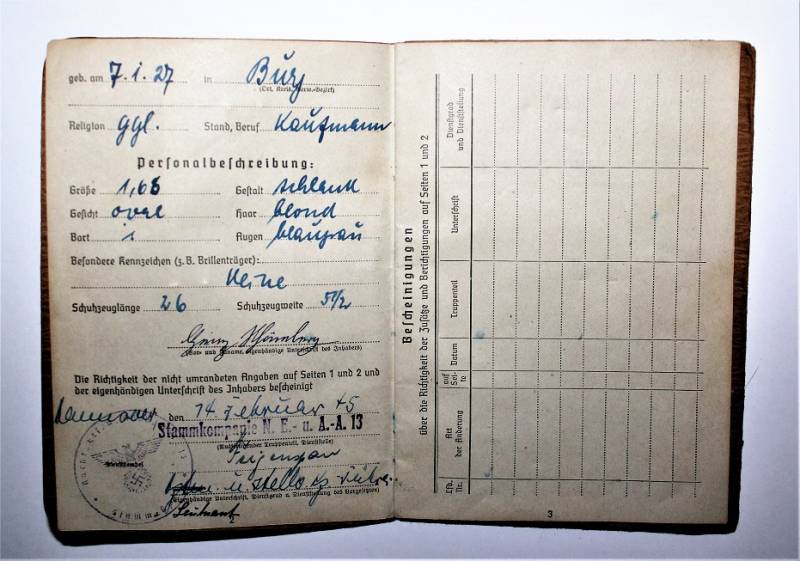 geb. am 7.1.27 in Burg
(Ort, Kreis, Verw.-Bezirk)
Religion ggl. Stand, Beruf Kaufmann
Personalbeschreibung:
Größe 1,68 Gestalt schlank
Gesicht oval Haar blond
Bart Augen blaugrau
Besondere Kennzeichen (z. B. Brillenträger):
Keine
Schuhzeuglänge 26 Schuhzeugweite 5½
(Vor- und Zuname, eigenhändige Unterschrift des Inhabers)
Die Richtigkeit der nicht umrandeten Angaben auf Seiten 1 und 2 und
der eigenhändigen Unterschrift des Inhabers bescheinigt
Hannover den 14. Februar 45
Stammkompanie N. E.- u. A.-A. 13
(Ausfertigender Truppenteil, Dienststelle)
Dienststempel
(Eigenhändige Unterschrift, Dienstgrad u. Dienststellung des Vorgesetzten)
Leutnant
Bescheinigungen
über die Richtigkeit der Zusätze und Berichtigungen auf Seiten 1 und 2
Lfd. Nr.
Art der Änderung
auf Seite
Datum
Truppenteil
Unterschrift
Dienstgrad und Dienststellung
3